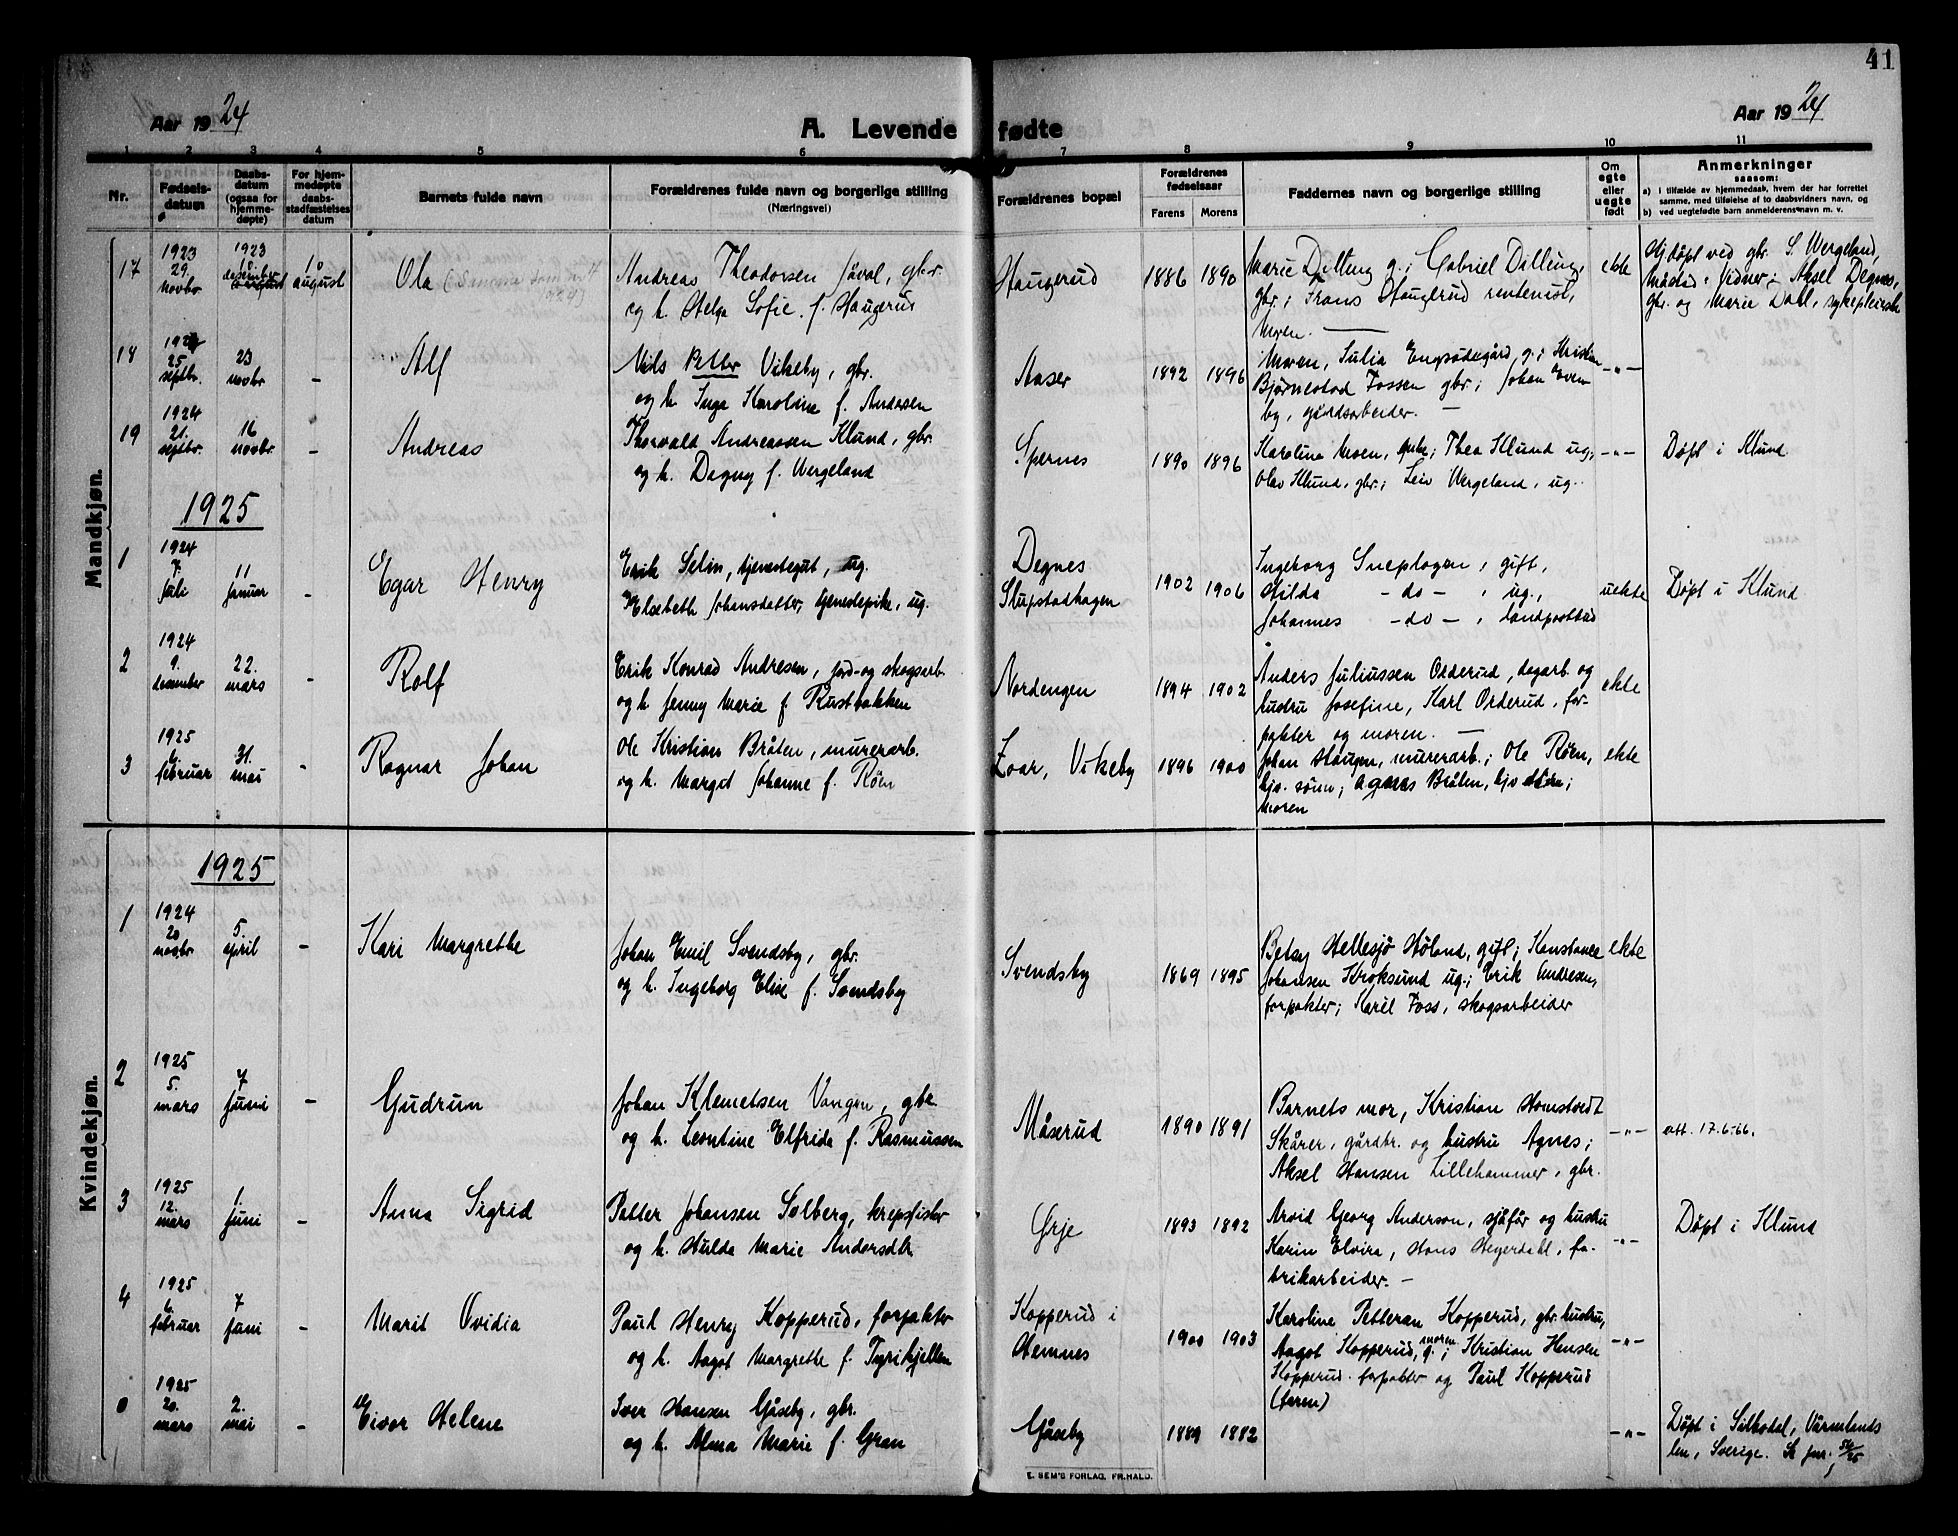 41
Aar 1924
A. Levende fødte
Aar 1924
1 2 3 4 5 6 7 8 9 10 11
Nr.
Fødsels-
datum
Daabs-
datum
(ogsaa for
hjemme-
døpte)
For hjem-
medøpte
daabs-
stadfæstelses
datum
Barnets fulde navn
Forældrenes fulde navn og borgerlige stilling
(Næringsvei)
Forældrenes bopæl
Forældrenes
fødselsaar
Farens Morens
Faddernes navn og borgerlige stilling
Om
egte
eller
uegte
født
Anmerkninger
saasom:
a) i tilfælde av hjemmedaab, hvem der har forrettet
samme, med tilføielse af to daabsvidners navn, og
b) ved uegtefødte barn anmelderens navn m. v.
Mandkjøn.
17
1923
29.
novbr.
1923
desember
august
Ola (Samme som nr 4
Andreas Theodorsen gbr.
og h. Helga Sofie f. Haugerud
Haugerud
1886 1890
Marie Dilling g.; Gabriel Dilling,
gbr; Frans Haugerud rentenist,
Moren. —
ekte
Hjdøpt ved gbr. S. Wergeland,
Vidner: Aksel Degnes,
gbr. og Marie Dahl, sykepleierske
18
1924
25
septbr.
23
novbr
-
Alf
Nils Petter Vikeby, gbr.
og h. Inga Karoline f. Andersen
Aaser
1892 1896
Moren, Julia Engsødegård, g.; Kristian
Bjørnestad Fossen gbr; Johan Even-
by, gårdsarbeider. —
-"-
19
1924
21.
septbr.
16
novbr
-
Andreas
Thorvald Andreassen Klund, gbr.
og h. Dagny f. Wergeland
Spernes
1890 1896
Karoline Moen, enke; Thea Klund ug;
Olav Klund, gbr; Leiv Wergeland, ug.
-"-
Døpt i Klund
1925
1
1924
7.
juli
11
januar
Egar Henry
Erik Selin, tjenestegut, ug.
Elsebeth Johansdatter, tjenestepike, ug.
Degnes
Slupstadhagen
1902 1906
Ingeborg Sneplogen, gift,
Hilda - do - , ug.,
Johannes - do - , landpostbud
uekte
Døpt i Klund
2
1924
9.
desember
22.
mars
-
Rolf
Erik Konrad Andresen, jord- og skogsarb.
og h. Jenny Marie f. Rustbakken
Nordengen
1894 1902
Anders Juliussen Orderud, dagarb. og
hustru Josefine, Karl Orderud, for-
pakter og moren. —
ekte
3
1925
6.
februar
31.
mai
-
Ragnar Johan
Ole Kristian Bråten, murerarb.
og h. Margit Johanne f. Røen
Zoar, Vikeby
1896 1900
Johan Haugen, murerarb.; Ole Røen,
hjv. sønn; Agnes Bråten, hjv datter;
Moren
ekte
Kvindekjøn.
1925
1
1924
20
novbr
5.
april
-
Kari Margrethe
Johan Emil Svendsby, gbr.
og h. Ingeborg Elise f. Svendsby
Svendsby
1869 1895
Betsy Hellesjö Høland, gift; Konstanse
Johansen Kroksund ug.; Erik Andresen,
forpakter; Karel Foss, skogsarbeider
ekte
2
1925
5.
mars
7
juni
-
Gudrun
Johan Klemetsen Vangen, gbr
og h. Leontine Elfrida f. Rasmussen
Måserud
1890 1891
Barnets mor, Kristian Homstvedt
Skårer, gårdbr. og hustru Agnes;
Aksel Hansen Lillehammer, gbr.
-"-
att. 17.6.-66.
3
1925
12.
mars
1.
juni
-
Anna Sigrid
Petter Johansen Solberg, krepsfisker
og h. Hulda Marie Andersdtr
Ørje
1893 1892
Arvid Georg Anderson, sjåfør og hustru
Karin Elvira, Hans Heyerdahl, fa-
brikarbeider. —
-"-
Døpt i Klund
4
1925
6.
februar
7
juni
-
Marit Ovidia
Paul Henry Kopperud, forpakter
og h. Aagot Margrethe f. Tyrihjellen
Kopperud i
Hemnes
1900 1903
Karoline Petteran Kopperud, gbr. hustru,
Aagot Kopperud, moren g.; Kristian Hansen
Kopperud forpakter og Paul Kopperud
(faren)
-"-
0
1925
20.
mars
2.
mai
-
Eivor Helene
Iver Hansen Gåseby, gbr.
og h. Alma Marie f. Gran
Gåseby
1889 1882
-"-
Døpt i Silbodal, Värmlands
len, Sverige. Se jnr. 56/25
E. SEM'S FORLAG, FR.HALD.